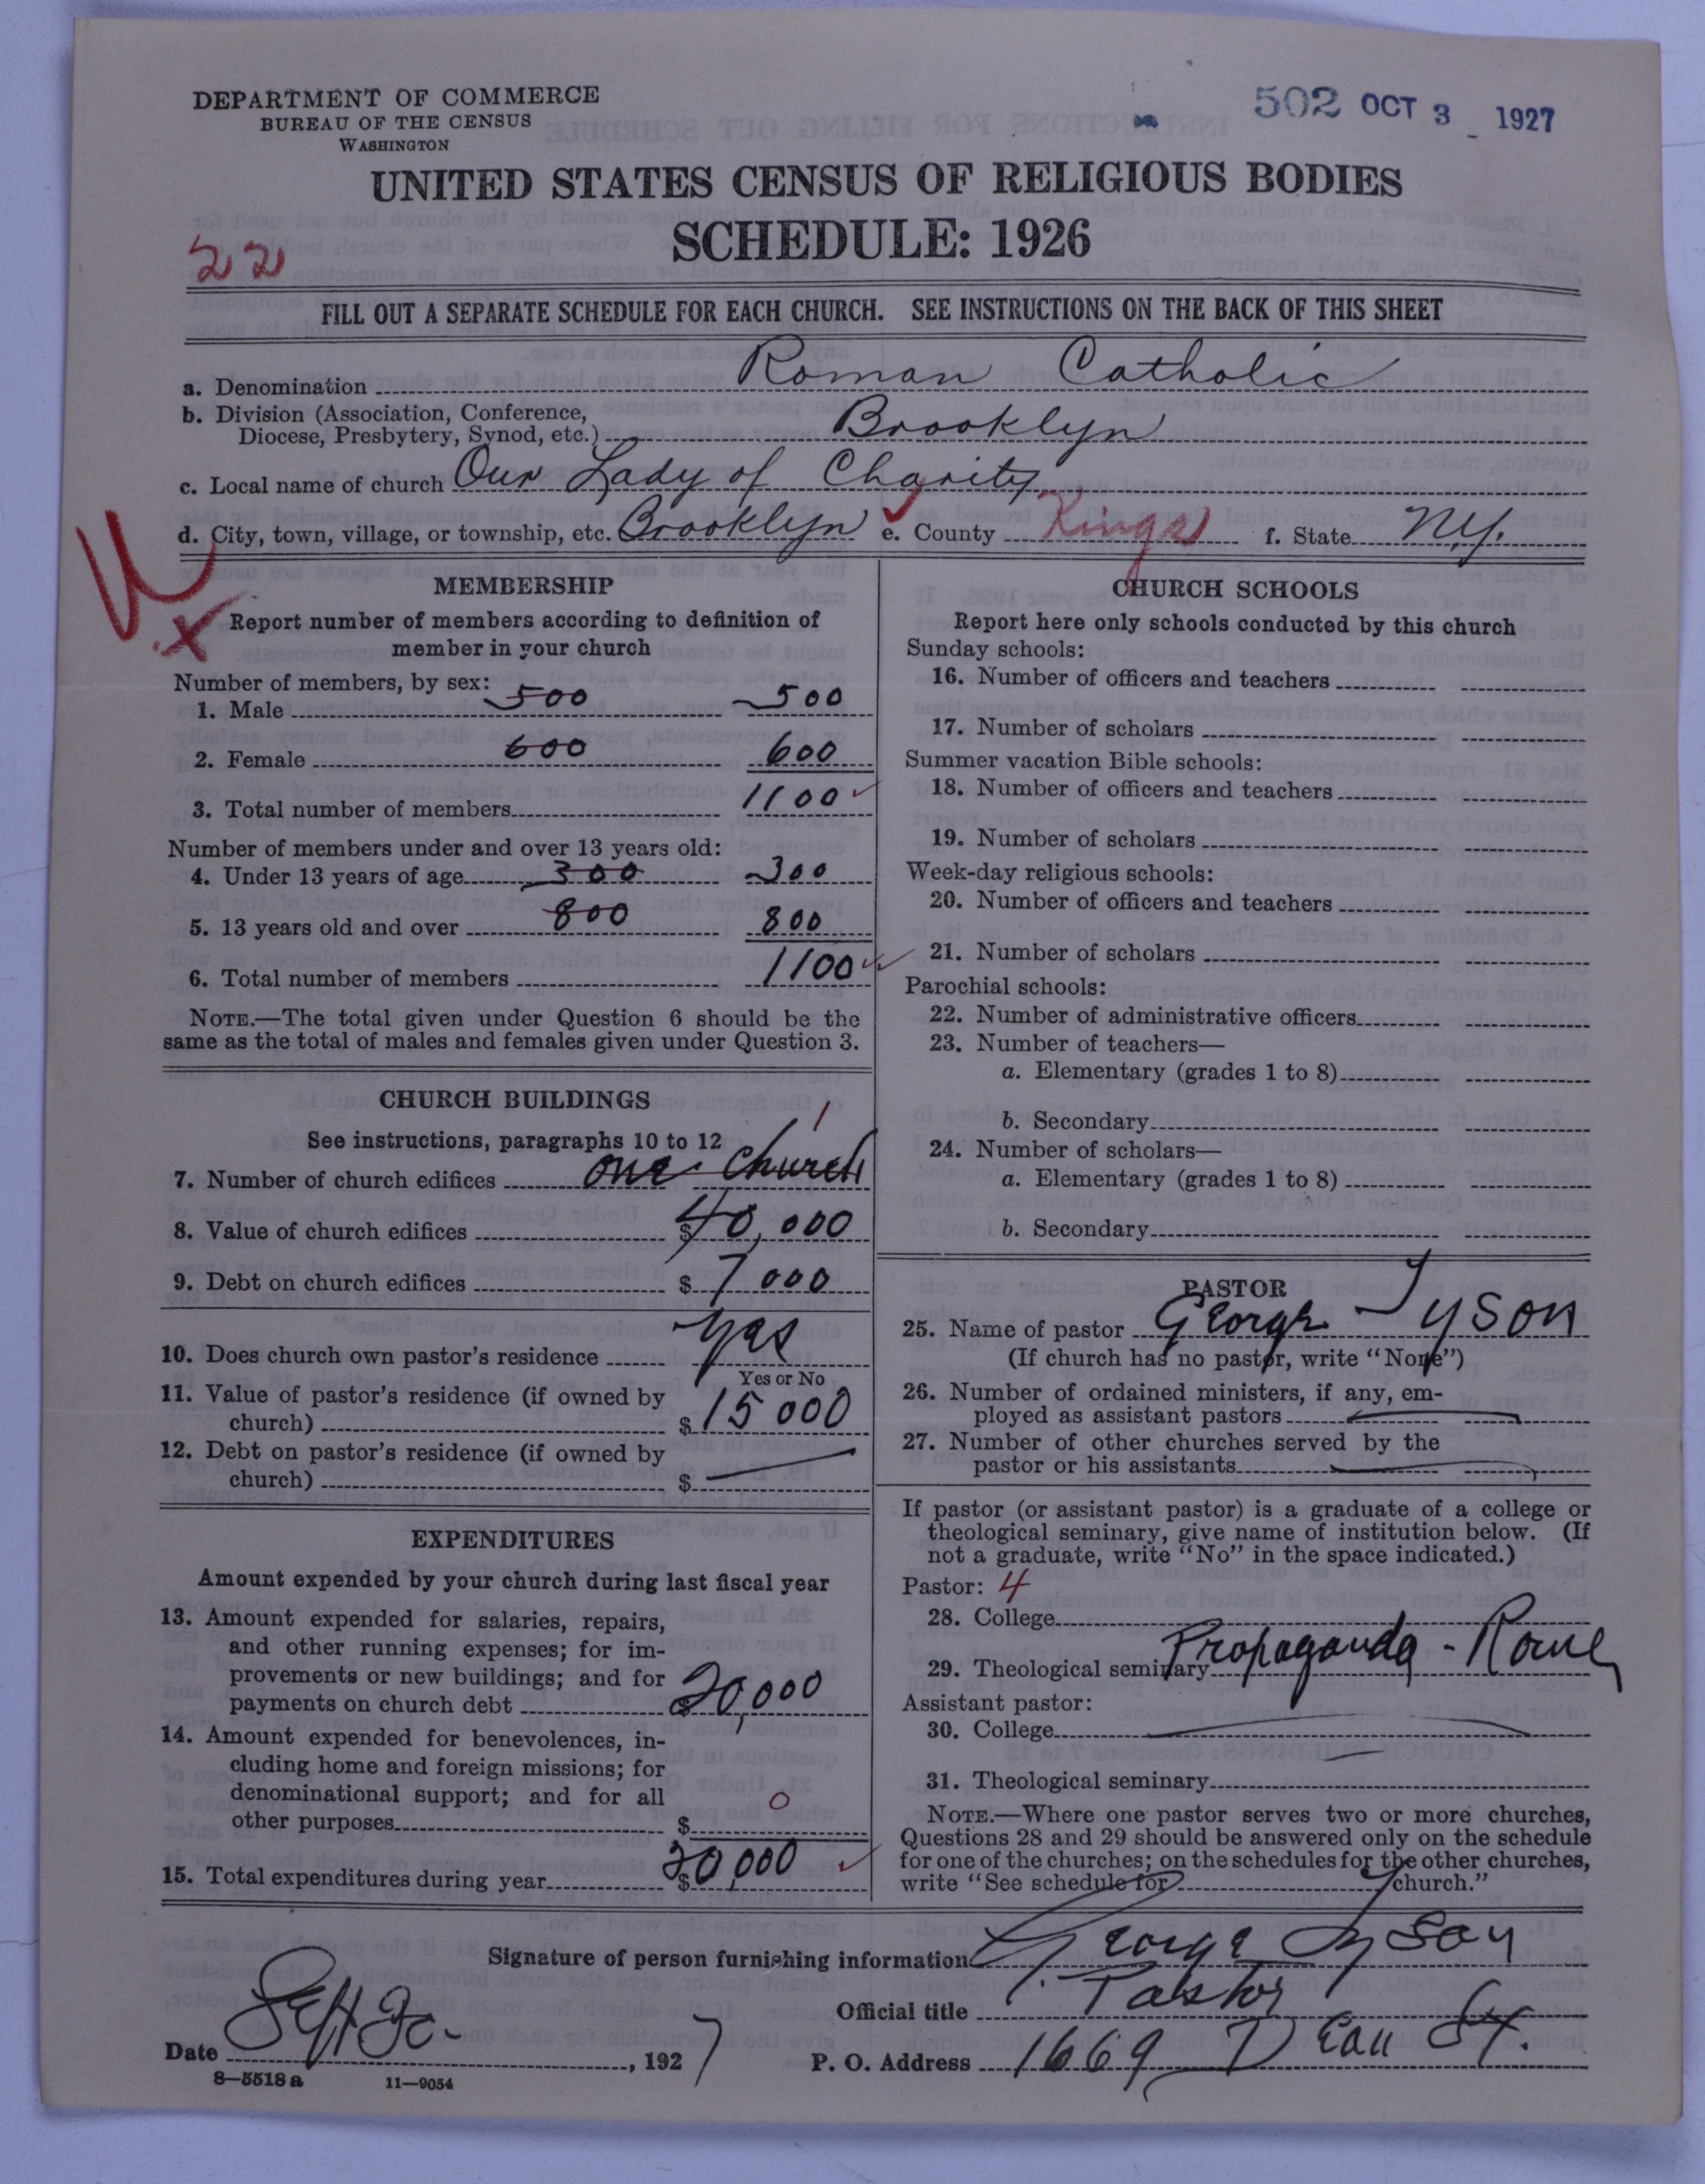 DEPARTMENT OF COMMERCE
BUREAU OF THE CENSUS
WASHINGTON
502 OCT 3 1927
UNITED STATES CENSUS OF RELIGIOUS BODIES
SCHEDULE: 1926
22
FILL OUT A SEPARATE SCHEDULE FOR EACH CHURCH. SEE INSTRUCTIONS ON THE BACK OF THIS SHEET
a. Denomination Roman Catholic
b. Division (Association, Conference,
Diocese, Presbytery, Synod, etc.) Brooklyn
c. Local name of church Our Lady of Charity
d. City, town, village, or township, etc. Brooklyn e. County Kings f. State N.Y.
MEMBERSHIP
Report number of members according to definition of
member in your church
Number of members, by sex:
1. Male 500 500
2. Female 600 600
3. Total number of members 1100
Number of members under and over 13 years old:
4. Under 13 years of age 300 300
5. 13 years old and over 800 800
6. Total number of members 1100
NOTE.—The total given under Question 6 should be the
same as the total of males and females given under Question 3.
CHURCH BUILDINGS
See instructions, paragraphs 10 to 12 1
7. Number of church edifices one church
8. Value of church edifices $40,000
9. Debt on church edifices $7000
10. Does church own pastor's residence yes
Yes or No
11. Value of pastor's residence (if owned by
church) $15000
12. Debt on pastor's residence (if owned by
church) $
EXPENDITURES
Amount expended by your church during last fiscal year
13. Amount expended for salaries, repairs,
and other running expenses; for im-
provements or new buildings; and for
payments on church debt $20,000
14. Amount expended for benevolences, in-
cluding home and foreign missions; for
denominational support; and for all
other purposes $ 0
15. Total expenditures during year $20,000
CHURCH SCHOOLS
Report here only schools conducted by this church
Sunday schools:
16. Number of officers and teachers
17. Number of scholars
Summer vacation Bible schools:
18. Number of officers and teachers
19. Number of scholars
Week-day religious schools:
20. Number of officers and teachers
21. Number of scholars
Parochial schools:
22. Number of administrative officers
23. Number of teachers—
a. Elementary (grades 1 to 8)
b. Secondary
24. Number of scholars—
a. Elementary (grades 1 to 8)
b. Secondary
PASTOR
25. Name of pastor George Tyson
(If church has no pastor, write "None")
26. Number of ordained ministers, if any, em-
ployed as assistant pastors
27. Number of other churches served by the
pastor or his assistants
If pastor (or assistant pastor) is a graduate of a college or
theological seminary, give name of institution below. (If
not a graduate, write "No" in the space indicated.)
Pastor: 4
28. College
29. Theological seminary Propaganda - Rome
Assistant pastor:
30. College
31. Theological seminary
NOTE.—Where one pastor serves two or more churches,
Questions 28 and 29 should be answered only on the schedule
for one of the churches; on the schedules for the other churches,
write "See schedule for church."
Signature of person furnishing information George Tyson
Official title Pastor
Date Sept 30 , 1927 P. O. Address 1669 Dean St.
8—5518 a 11—9054